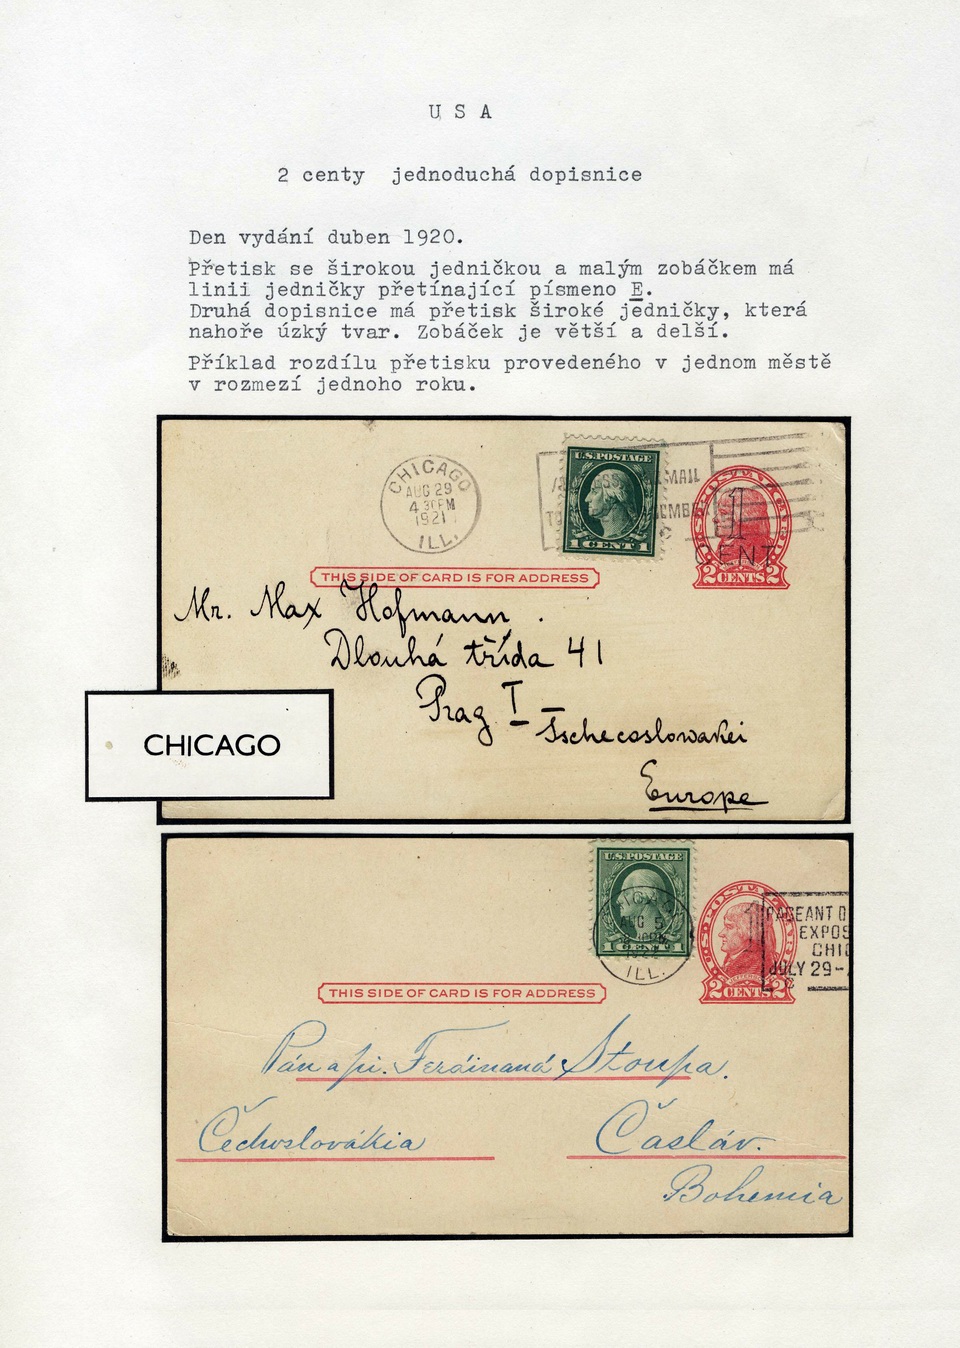 U S A
2 centy jednoduchá dopisnice
Den vydání duben 1920.
Přetisk se širokou jedničkou a malým zobáčkem má
linii jedničky přetínající písmeno E.
Druhá dopisnice má přetisk široké jedničky, která
nahoře úzký tvar. Zobáček je větší a delší.
Příklad rozdílu přetisku provedeného v jednom městě
v rozmezí jednoho roku.
CHICAGO
AUG 29
4 30PM
1921
ILL.
U.S. POSTAGE
1 CENT 1
MAIL
1
CENT
2 CENTS 2
THIS SIDE OF CARD IS FOR ADDRESS
Mr. Max Hofmann.
Dlouhá třída 41
Prag I
Tschecoslowakei
Europe
CHICAGO
U.S. POSTAGE
1 CENT 1
5
ILL.
U.S. POSTAGE
2 CENTS 2
1
PAGEANT O
EXPOS
CHIC
JULY 29-
THIS SIDE OF CARD IS FOR ADDRESS
Pán a pí. Ferdinand Stoupa.
Čechoslovákia
Čásláv.
Bohemia